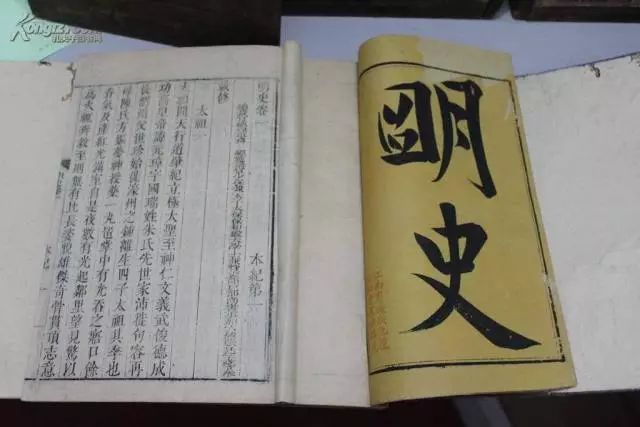 明
史
明史卷一　本紀第一
敕修
太祖一
太祖開天行道肇紀立極大聖至神仁文義武俊德成
功高皇帝諱元璋字國瑞姓朱氏先世家沛徙句容再
徙泗州父世珍始徙濠州之鍾離生四子太祖其季也
母陳氏方娠夢神授藥一丸置掌中有光吞之寤口餘
香氣及產紅光滿室自是夜數有光起鄰里望見驚以
為火輒奔救至則無有比長姿貌雄傑奇骨貫頂志意